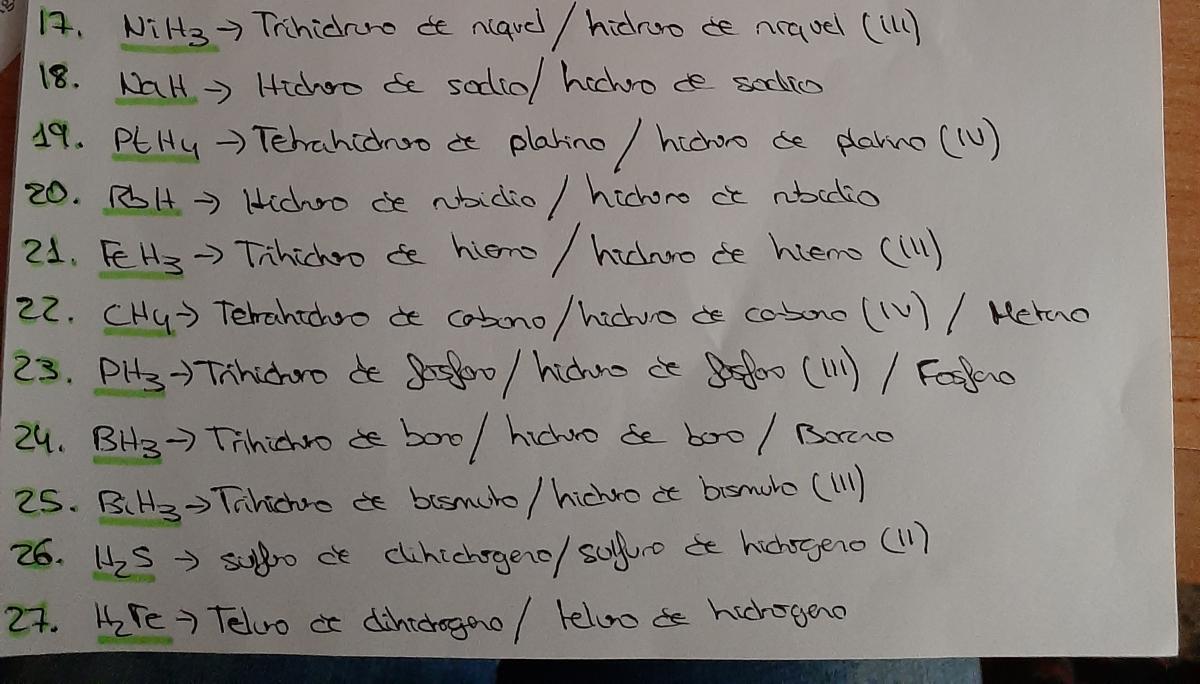 17. NiH3 → Trihidruro de níquel / hidruro de níquel (III)
18. NaH → Hidruro de sodio / hidruro de sodio
19. PtH4 → Tetrahidruro de platino / hidruro de platino (IV)
20. RbH → Hidruro de rubidio / hidruro de rubidio
21. FeH3 → Trihidruro de hierro / hidruro de hierro (III)
22. CH4 → Tetrahidruro de carbono / hidruro de carbono (IV) / Metano
23. PH3 → Trihidruro de fósforo / hidruro de fósforo (III) / Fosfano
24. BH3 → Trihidruro de boro / hidruro de boro / Borano
25. BiH3 → Trihidruro de bismuto / hidruro de bismuto (III)
26. H2S → sulfuro de dihidrógeno / sulfuro de hidrógeno (II)
27. H2Te → Teluro de dihidrógeno / teluro de hidrógeno